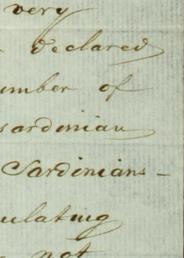 very
declared
umber of
sardinian
Sardinians -
ulating
not